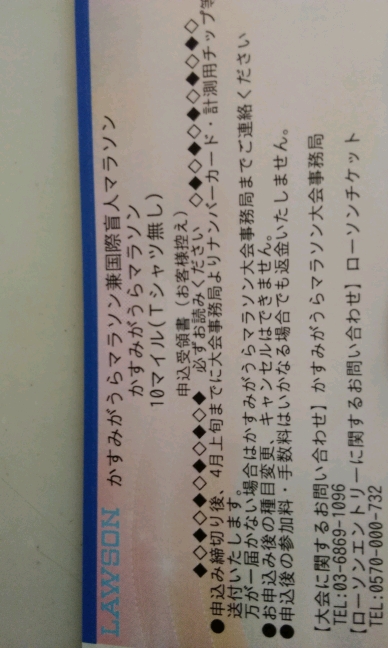 LAWSON
かすみがうらマラソン兼国際盲人マラソン
かすみがうらマラソン
10マイル(Tシャツ無し)
申込受領書(お客様控え)
◆◇◆◇◆◇◆◇◆◇◆ 必ずお読みください ◇◆◇◆◇◆◇◆◇◆◇
●申込み締切り後、4月上旬までに大会事務局よりナンバーカード・計測用チップ等
送付いたします。
万が一届かない場合はかすみがうらマラソン大会事務局までご連絡ください
●お申込み後の種目変更、キャンセルはできません。
●申込後の参加料・手数料はいかなる場合でも返金いたしません。
【大会に関するお問い合わせ】かすみがうらマラソン大会事務局
TEL:03-6869-1096
【ローソンエントリーに関するお問い合わせ】ローソンチケット
TEL:0570-000-732